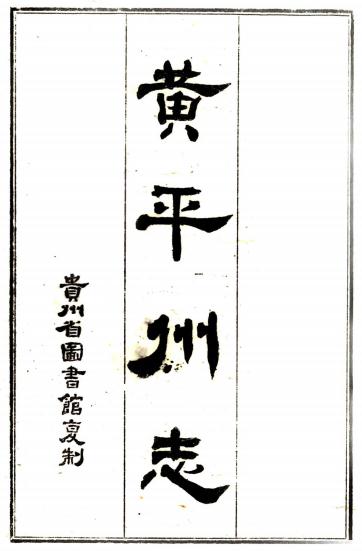 黄平州志
貴州省圖書館复制